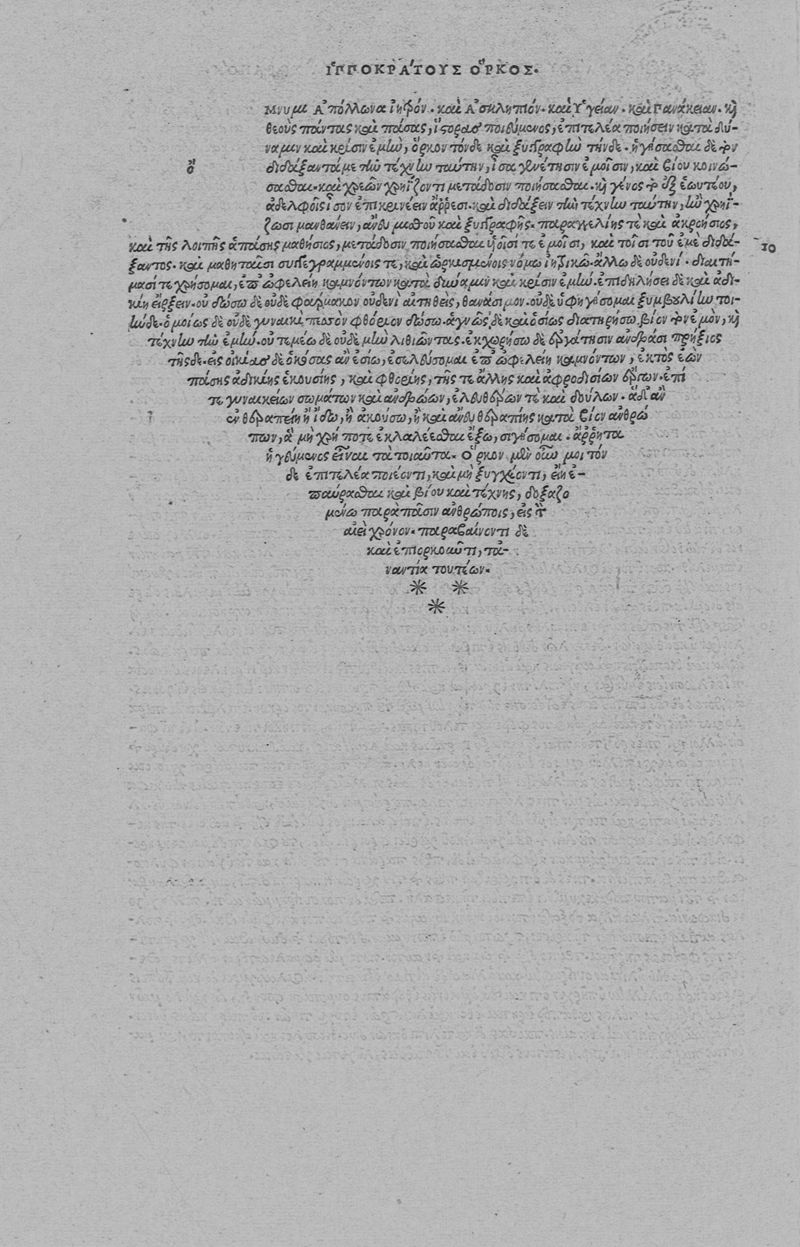 ἹΠΠΟΚΡΆΤΟΥΣ ὍΡΚΟΣ.
Μνυμι Ἀπόλλωνα ἰητρόν. καὶ Ἀσκληπιόν. καὶ Ὑγείαν. καὶ Πανάκειαν. καὶ
θεοὺς πάντας καὶ πάσας, ἵστορας ποιεύμενος, ἐπιτελέα ποιήσειν κατὰ δύ-
ναμιν καὶ κρίσιν ἐμὴν, ὅρκον τόνδε καὶ ξυγγραφὴν τήνδε. ἡγήσασθαι δὲ τὸν
ὦ
διδάξαντά με τὴν τέχνην ταύτην, ἴσα γενέτησιν ἐμοῖσιν, καὶ βίου κοινώ-
σασθαι. καὶ χρεῶν χρηΐζοντι μετάδοσιν ποιήσασθαι. καὶ γένος τὸ ἐξ ἑωυτέου,
ἀδελφοῖς ἶσον ἐπικρινέειν ἄρρεσι. καὶ διδάξειν τὴν τέχνην ταύτην, ἢν χρηΐ-
ζωσι μανθάνειν, ἄνευ μισθοῦ καὶ ξυγγραφῆς. παραγγελίης τὲ καὶ ἀκροήσιος,
καὶ τῆς λοιπῆς ἁπάσης μαθήσιος, μετάδοσιν ποιήσασθαι υἱοῖσί τε ἐμοῖσι, καὶ τοῖσι τοῦ ἐμὲ διδά-
10
ξαντος. καὶ μαθηταῖσι συγγεγραμμένοις τε, καὶ ὡρκισμένοις νόμῳ ἰητρικῷ. ἄλλῳ δὲ οὐδενί. διαιτή-
μασί τε χρήσομαι, ἐπ' ὠφελείῃ καμνόντων κατὰ δύναμιν καὶ κρίσιν ἐμὴν. ἐπὶ δηλήσει δὲ καὶ ἀδι-
κίῃ εἴρξειν. οὐ δώσω δὲ οὐδὲ φάρμακον οὐδενὶ αἰτηθεὶς, θανάσιμον. οὐδὲ ὑφηγήσομαι ξυμβουλίην τοι-
ήνδε. ὁμοίως δὲ οὐδὲ γυναικὶ πεσσὸν φθόριον δώσω. ἁγνῶς δὲ καὶ ὁσίως διατηρήσω βίον τὸν ἐμὸν, καὶ
τέχνην τὴν ἐμήν. οὐ τεμέω δὲ οὐδὲ μὴν λιθιῶντας. ἐκχωρήσω δὲ ἐργάτησιν ἀνδράσι πρήξιος
τῆσδε. εἰς οἰκίας δὲ ὁκόσας ἂν ἐσίω, ἐσελεύσομαι ἐπ' ὠφελείῃ καμνόντων, ἐκτὸς ἐὼν
πάσης ἀδικίης ἑκουσίης, καὶ φθορίης, τῆς τε ἄλλης καὶ ἀφροδισίων ἔργων. ἐπί
τε γυναικείων σωμάτων καὶ ἀνδρῴων, ἐλευθέρων τὲ καὶ δούλων. ἃ δ' ἂν
ἐν θεραπείῃ ἢ ἴδω, ἢ ἀκούσω, ἢ καὶ ἄνευ θεραπίης κατὰ βίον ἀνθρώ
πων, ἃ μὴ χρή ποτε ἐκλαλέεσθαι ἔξω, σιγήσομαι. ἄρρητα
ἡγεύμενος εἶναι τὰ τοιαῦτα. Ὅρκον μὲν οὖν μοι τόν
δε ἐπιτελέα ποιέοντι, καὶ μὴ ξυγχέοντι, εἴη ἐ-
παύρασθαι καὶ βίου καὶ τέχνης, δοξαζο
μένῳ παρὰ πᾶσιν ἀνθρώποις, εἰς τὸν
αἰεὶ χρόνον. παραβαίνοντι δὲ
καὶ ἐπιορκοῦντι, τἀ-
ναντία τουτέων.